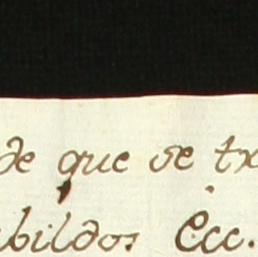 de que se tx
bildos Ecc.